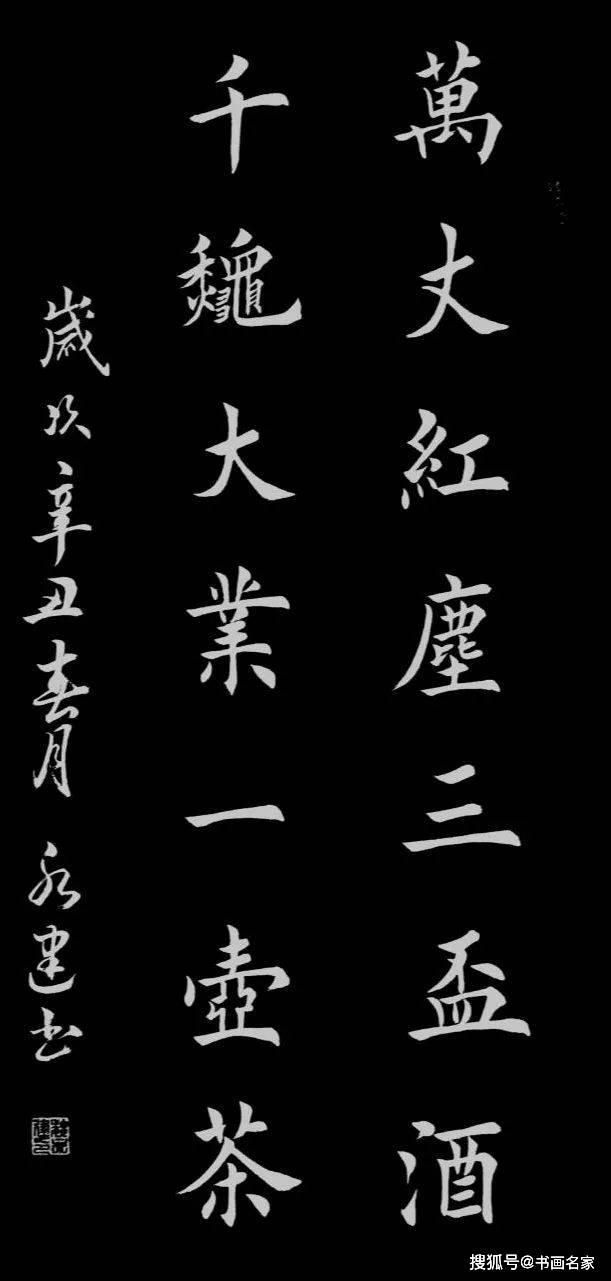 萬丈紅塵三盃酒
千龝大業一壺茶
歲次辛丑春月 永建书
搜狐号@书画名家